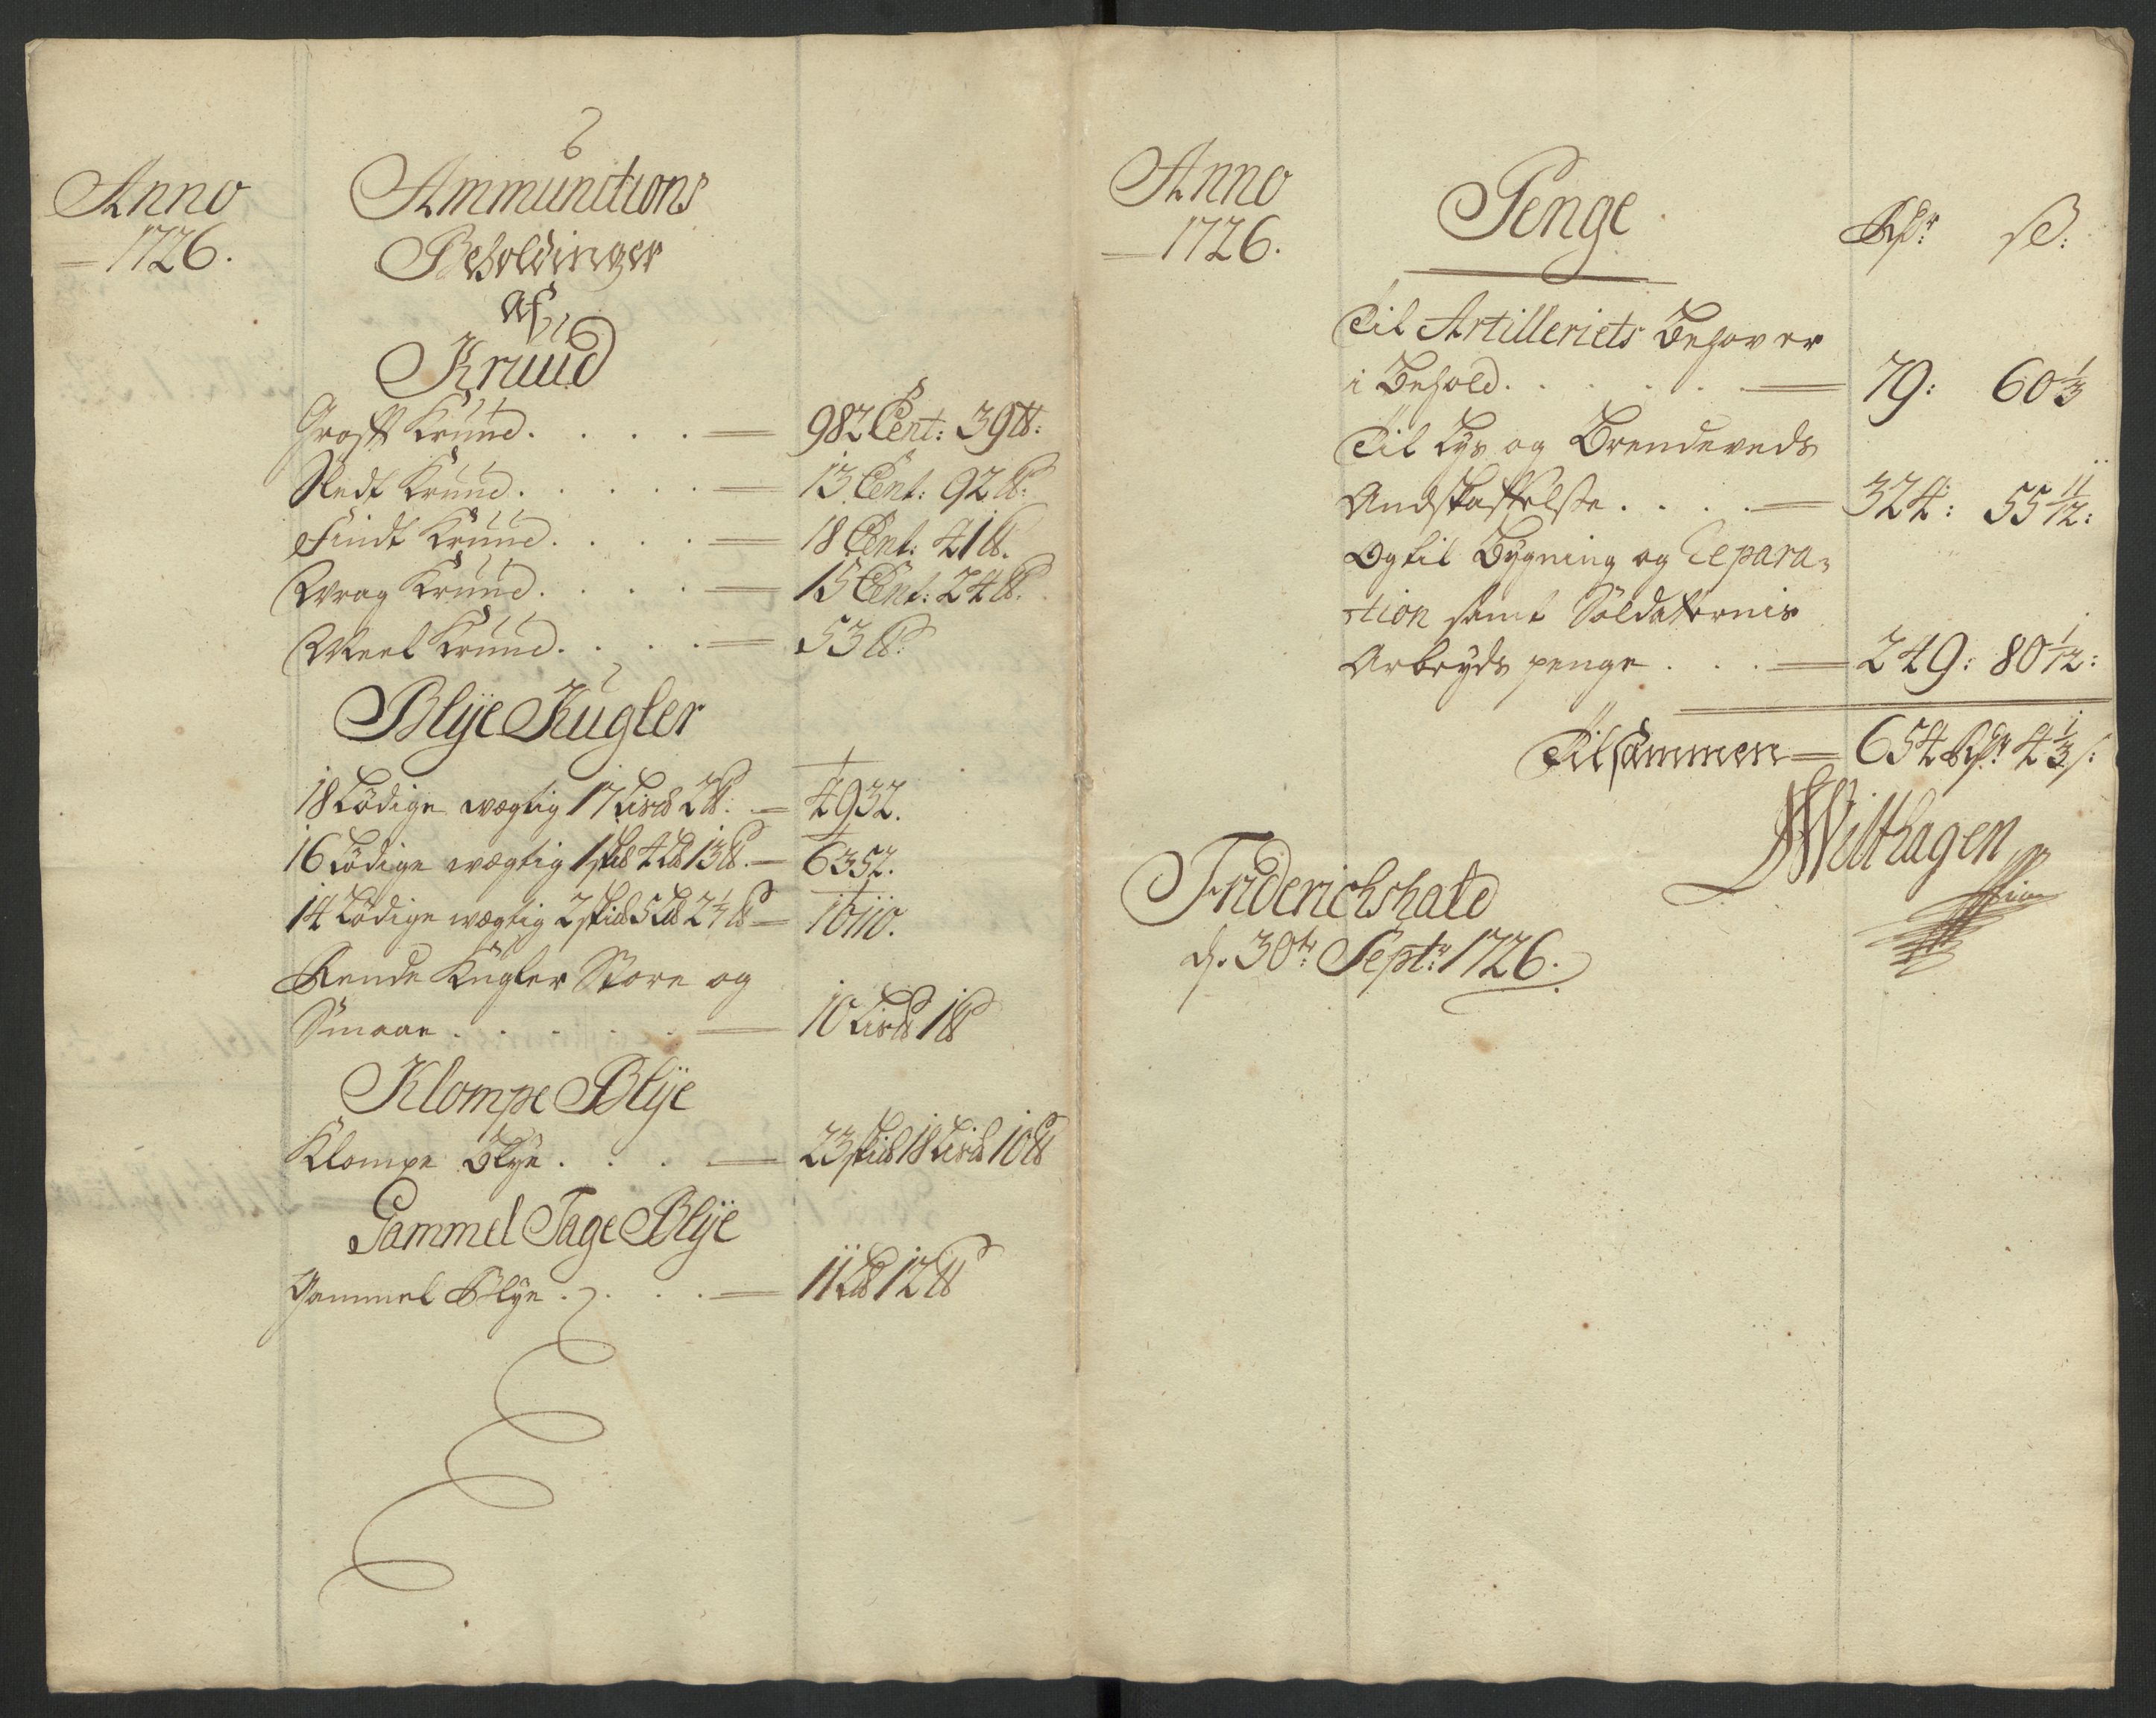 Anno
1726.
Ammunitions
Beholdinger
af
Kruud
Groft Kruud. . . . = 982 Cent: 39 ℔:
Sledt Kruud. . . . . = 13 Cent: 92 ℔:
Findt Kruud. . . . = 18 Cent: 41 ℔.
Wrag Kruud. . . . = 15 Cent: 24 ℔.
Meel Kruud. . . . = 53 ℔:
Blÿe Kugler
18 Lödige wegtig 17 Lis℔ 2 ℔: = 4932.
16 Lödige wegtig 1 sk℔ 4 L℔ 13 ℔. = 6352.
14 Lödige wegtig 2 sk℔ 5 L℔ 2½ ℔ = 10110.
Rende Kugler Store og
Smaae . . . . . = 10 Lis℔ 1 ℔
Klompe Blÿe
Klompe Blye . . . = 23 sk℔ 18 Lis℔ 10 ℔
Gammel Tage Blÿe
Gammel Blye . . . . = 11 L℔ 12 ℔
Anno
1726.
Penge
Rdr: ß:
Til Artilleriets Behov er
i Behold. . . . . . = 79: 60⅓
Til Lys og Brendeveds
Andskaffelse . . . . = 324: 55 11/12:
Og til Bygning og Repara=
tion samt Soldaternis
Arbeyds penge . . . = 249: 80 1/12:
Tilsammen = 654 Rdr 4⅓ ß:
Friderichshald
d. 30te Septr: 1726.
Wilthagen